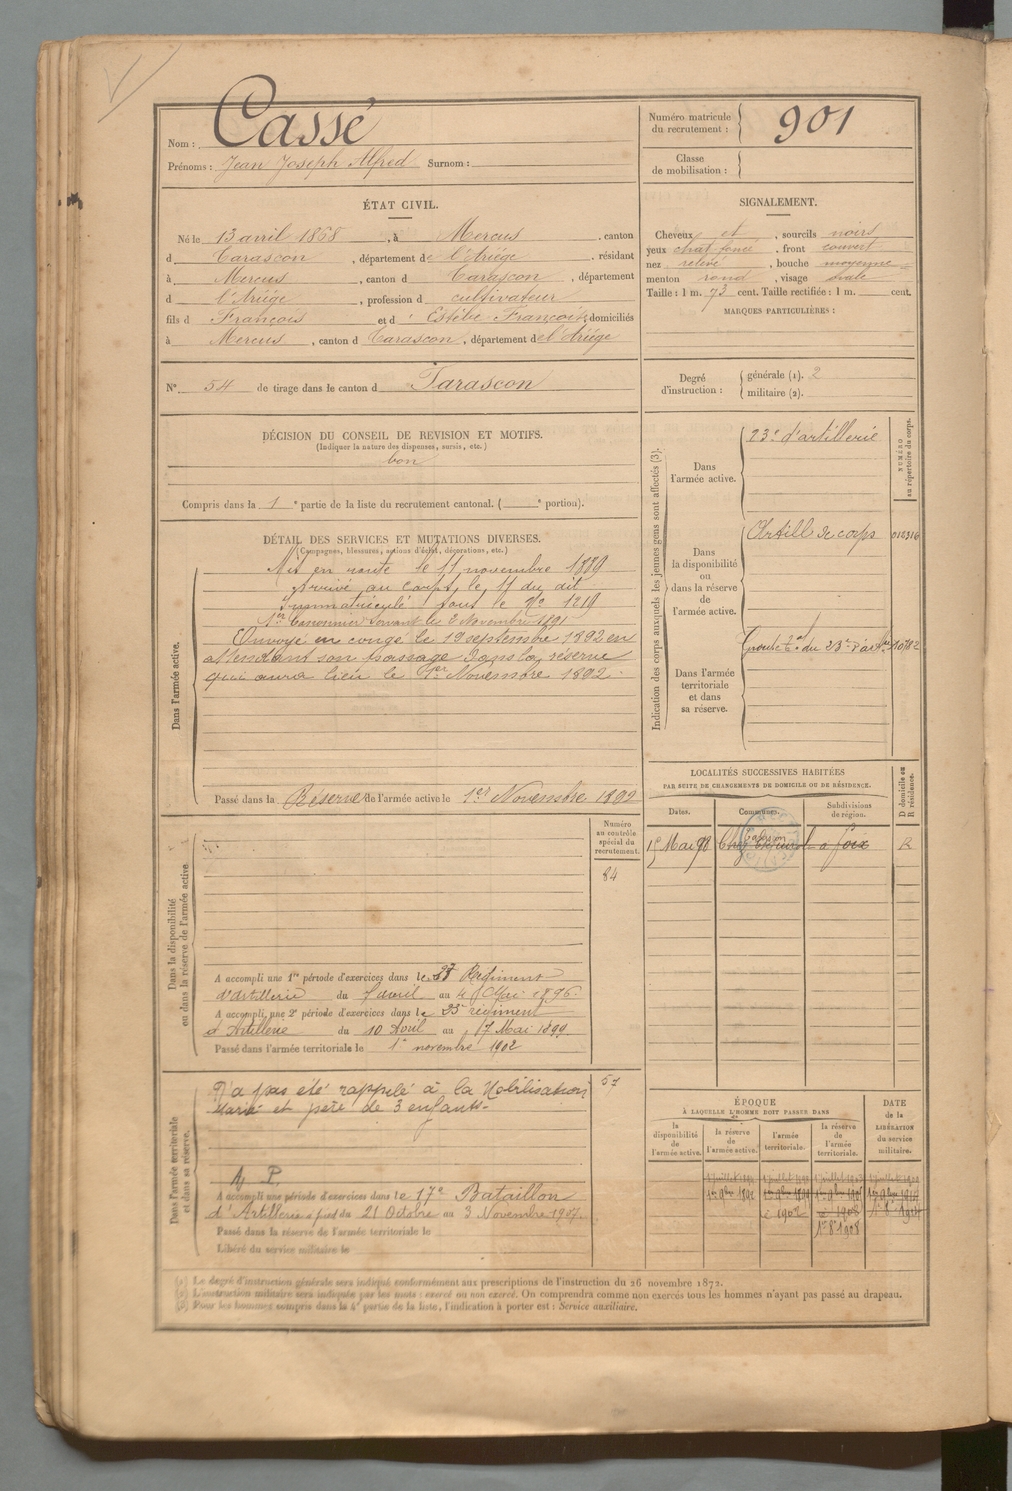 Nom : Cassé
Prénoms : Jean Joseph Alfred Surnom :
ÉTAT CIVIL.
Né le 13 avril 1868, à Mercus, canton
d Tarascon, département de l'Ariége, résidant
à Mercus, canton d Tarascon, département
d l'Ariége, profession d cultivateur
fils d François et d Estèbe Françoise, domiciliés
à Mercus, canton d Tarascon, département de l'Ariége
N° 54 de tirage dans le canton d Tarascon
DÉCISION DU CONSEIL DE REVISION ET MOTIFS.
(Indiquer la nature des dispenses, sursis, etc.)
bon
Compris dans la 1e partie de la liste du recrutement cantonal. (e portion).
DÉTAIL DES SERVICES ET MUTATIONS DIVERSES.
(Campagnes, blessures, actions d'éclat, décorations, etc.)
Dans l'armée active.
Mis en route le 11 novembre 1889
Arrivé au corps le 11 du dit
immatriculé sous le N° 1219
1er Canonnier servant les 2 Novembre 1891
Envoyé en congé le 19 septembre 1892 en
attendant son passage dans la réserve
qui aura lieu le 1er Novembre 1892.
Passé dans la Réserve de l'armée active le 1er Novembre 1892
Dans la disponibilité
ou dans la réserve de l'armée active
Numéro
au contrôle
spécial du
recrutement.
84
A accompli une 1re période d'exercices dans le 23 Régiment
d'Artillerie du avril au 4 Mai 1896.
A accompli une 2e période d'exercices dans le 23e régiment
d'Artillerie du 10 Avril au 17 Mai 1899.
Passé dans l'armée territoriale le 1er novembre 1902
Dans l'armée territoriale
et dans sa réserve.
57
N'a pas été rappelé à la Mobilisation
Marié et père de 3 enfants.
A. P.
A accompli une période d'exercices dans le 17e Bataillon
d'Artillerie à pied du 21 Octobre au 3 Novembre 1907.
Passé dans la réserve de l'armée territoriale le
Libéré du service militaire le
Numéro matricule
du recrutement : 901
Classe
de mobilisation :
SIGNALEMENT.
Cheveux et, sourcils noirs
yeux chat. foncé, front couvert
nez relevé, bouche moyenne
menton rond, visage ovale
Taille : 1 m. 73 cent. Taille rectifiée : 1 m. cent.
MARQUES PARTICULIÈRES :
Degré
d'instruction :
générale (1). 2
militaire (2).
Indication des corps auxquels les jeunes gens sont affectés (3).
NUMÉRO
au répertoire du corps.
Dans
l'armée active.
23e d'artillerie
Dans
la disponibilité
ou
dans la réserve
de
l'armée active.
Artill de corps
Dans l'armée
territoriale
et dans
sa réserve.
LOCALITÉS SUCCESSIVES HABITÉES
PAR SUITE DE CHANGEMENTS DE DOMICILE OU DE RÉSIDENCE.
D domicile ou
R résidence.
Dates.
Communes.
Subdivisions
de région.
Mai 98 foix R
ÉPOQUE
À LAQUELLE L'HOMME DOIT PASSER DANS
DATE
de la
LIBÉRATION
du service
militaire.
la
disponibilité
de
l'armée active.
la réserve
de
l'armée active.
l'armée
territoriale.
la réserve
de
l'armée
territoriale.
1er 9bre 1892
1902
1908
(1) Le degré d'instruction générale sera indiqué conformément aux prescriptions de l'instruction du 26 novembre 1872.
(2) L'instruction militaire sera indiquée par les mots : exercé ou non exercé. On comprendra comme non exercés tous les hommes n'ayant pas passé au drapeau.
(3) Pour les hommes compris dans la 4e partie de la liste, l'indication à porter est : Service auxiliaire.